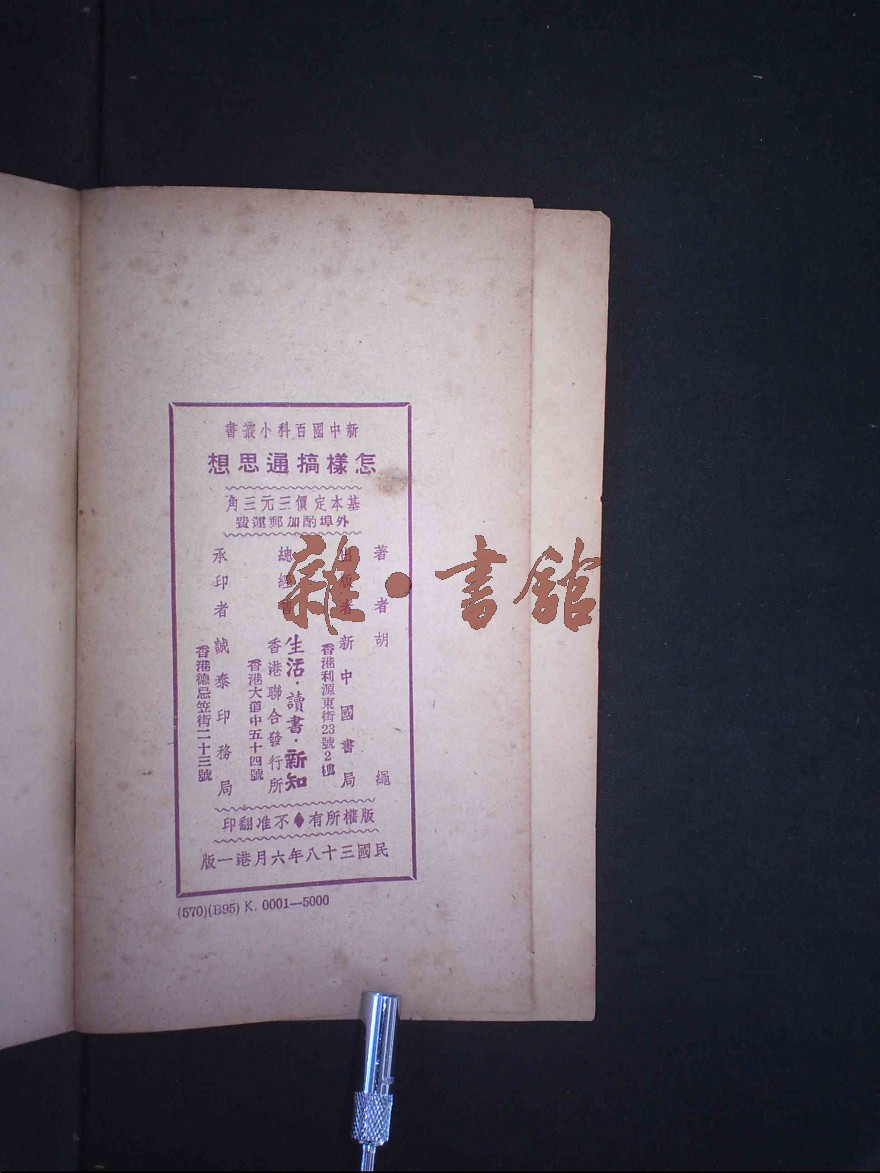 新中國百科小叢書
怎樣搞通思想
基本定價三元三角
外埠酌加郵運費
著者 胡繩
出版者 新中國書局
香港利源東街23號2樓
總經售 生活·讀書·新知
香港聯合發行所
香港大道中五十四號
承印者 誠泰印務局
香港德忌笠街二十三號
版權所有◆不准翻印
民國三十八年六月港一版
(570)(B95) K. 0001—5000
雜·書館